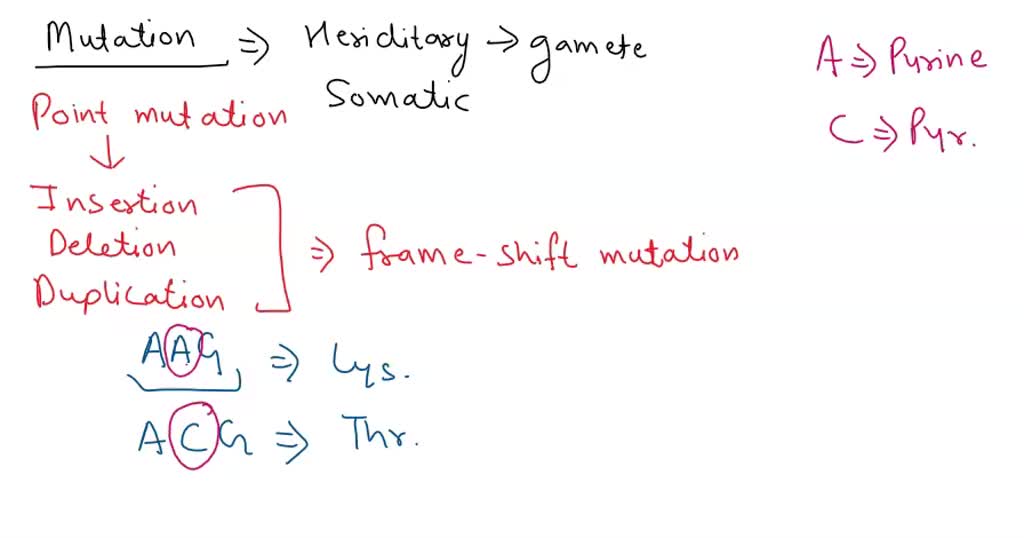 Mutation ⇒ Heriditary → gamete
Somatic
A ⇒ Purine
C ⇒ Pyr.
Point mutation
↓
Insertion
Deletion
Duplication
⇒ frame-shift mutation
AAG ⇒ Lys.
ACG ⇒ Thr.